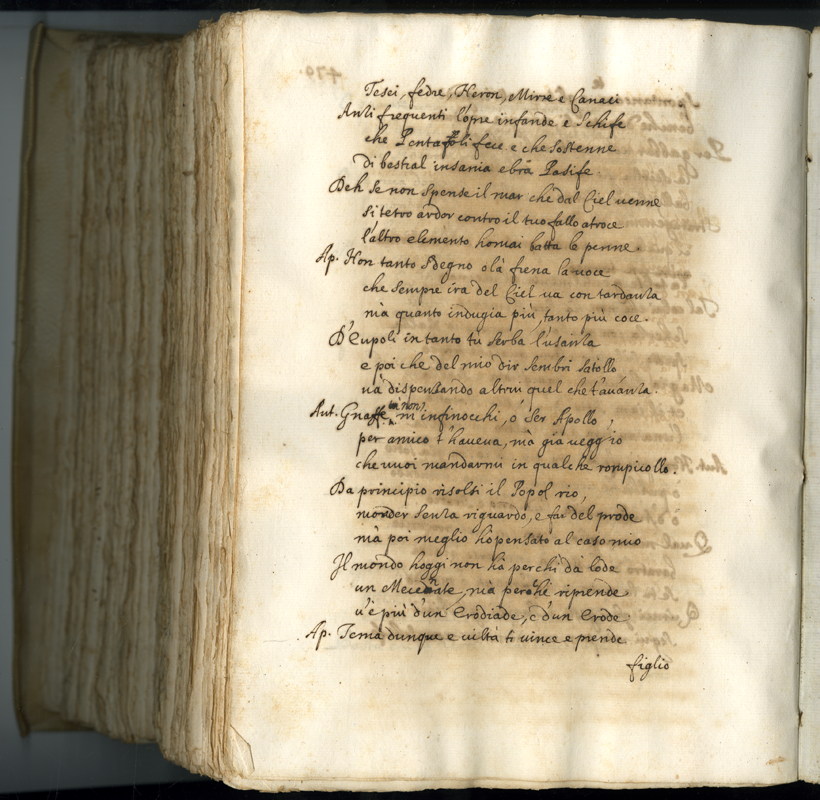 Tesei, fedre, Neron, Mirre e Canaci
Anzi frequenti l'opre infande e Schife
che Pentapoli fece e che sostenne
di bestial insania ebra Pasife.
Deh se non spense il mar che dal Ciel uenne
si tetro ardor contro il tuo fallo atroce
l'altro elemento homai batta le penne.
Ap. Non tanto sdegno olà frena la uoce
che sempre ira del Ciel ua con tardanza
mà quanto indugia più, tanto più coce.
D'Eupoli in tanto tu serba l'usanza
e poi che del mio dir sembri satollo
uà dispensando altrui quel che t'auanza.
Aut. Gnaffe, tu non m'infinocchi, ò Ser Apollo,
per amico t'haueua, mà già ueggio
che uuoi mandarmi in qualche rompicollo.
Da principio risolsi il Popol rio,
morder senza riguardo, e far del prode
mà poi meglio hò pensato al caso mio
Il mondo hoggi non hà perchi dà lode
un Mecenate, mà perchè riprende
u'è più d'un Erodiade, e d'un Erode
Ap. Tema dunque e uiltà ti uince e prende
figlio